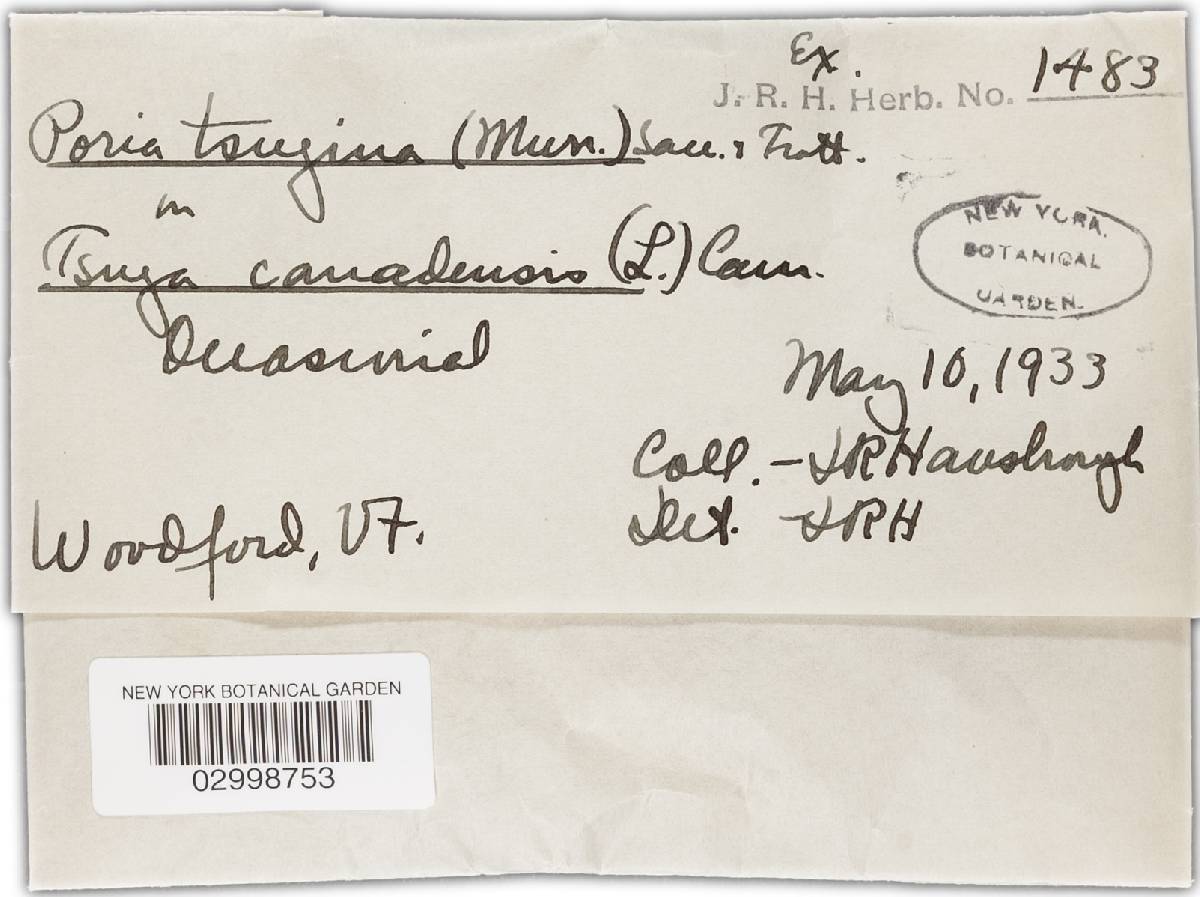 Ex.
J. R. H. Herb. No. 1483
Poria tsugina (Murr.) Sacc. & Trott.
on
Tsuga canadensis (L.) Carr.
NEW YORK
BOTANICAL
GARDEN.
May 10, 1933
Coll. - JRHansbrough
Det. - JRH
Woodford, VT.
NEW YORK BOTANICAL GARDEN
02998753